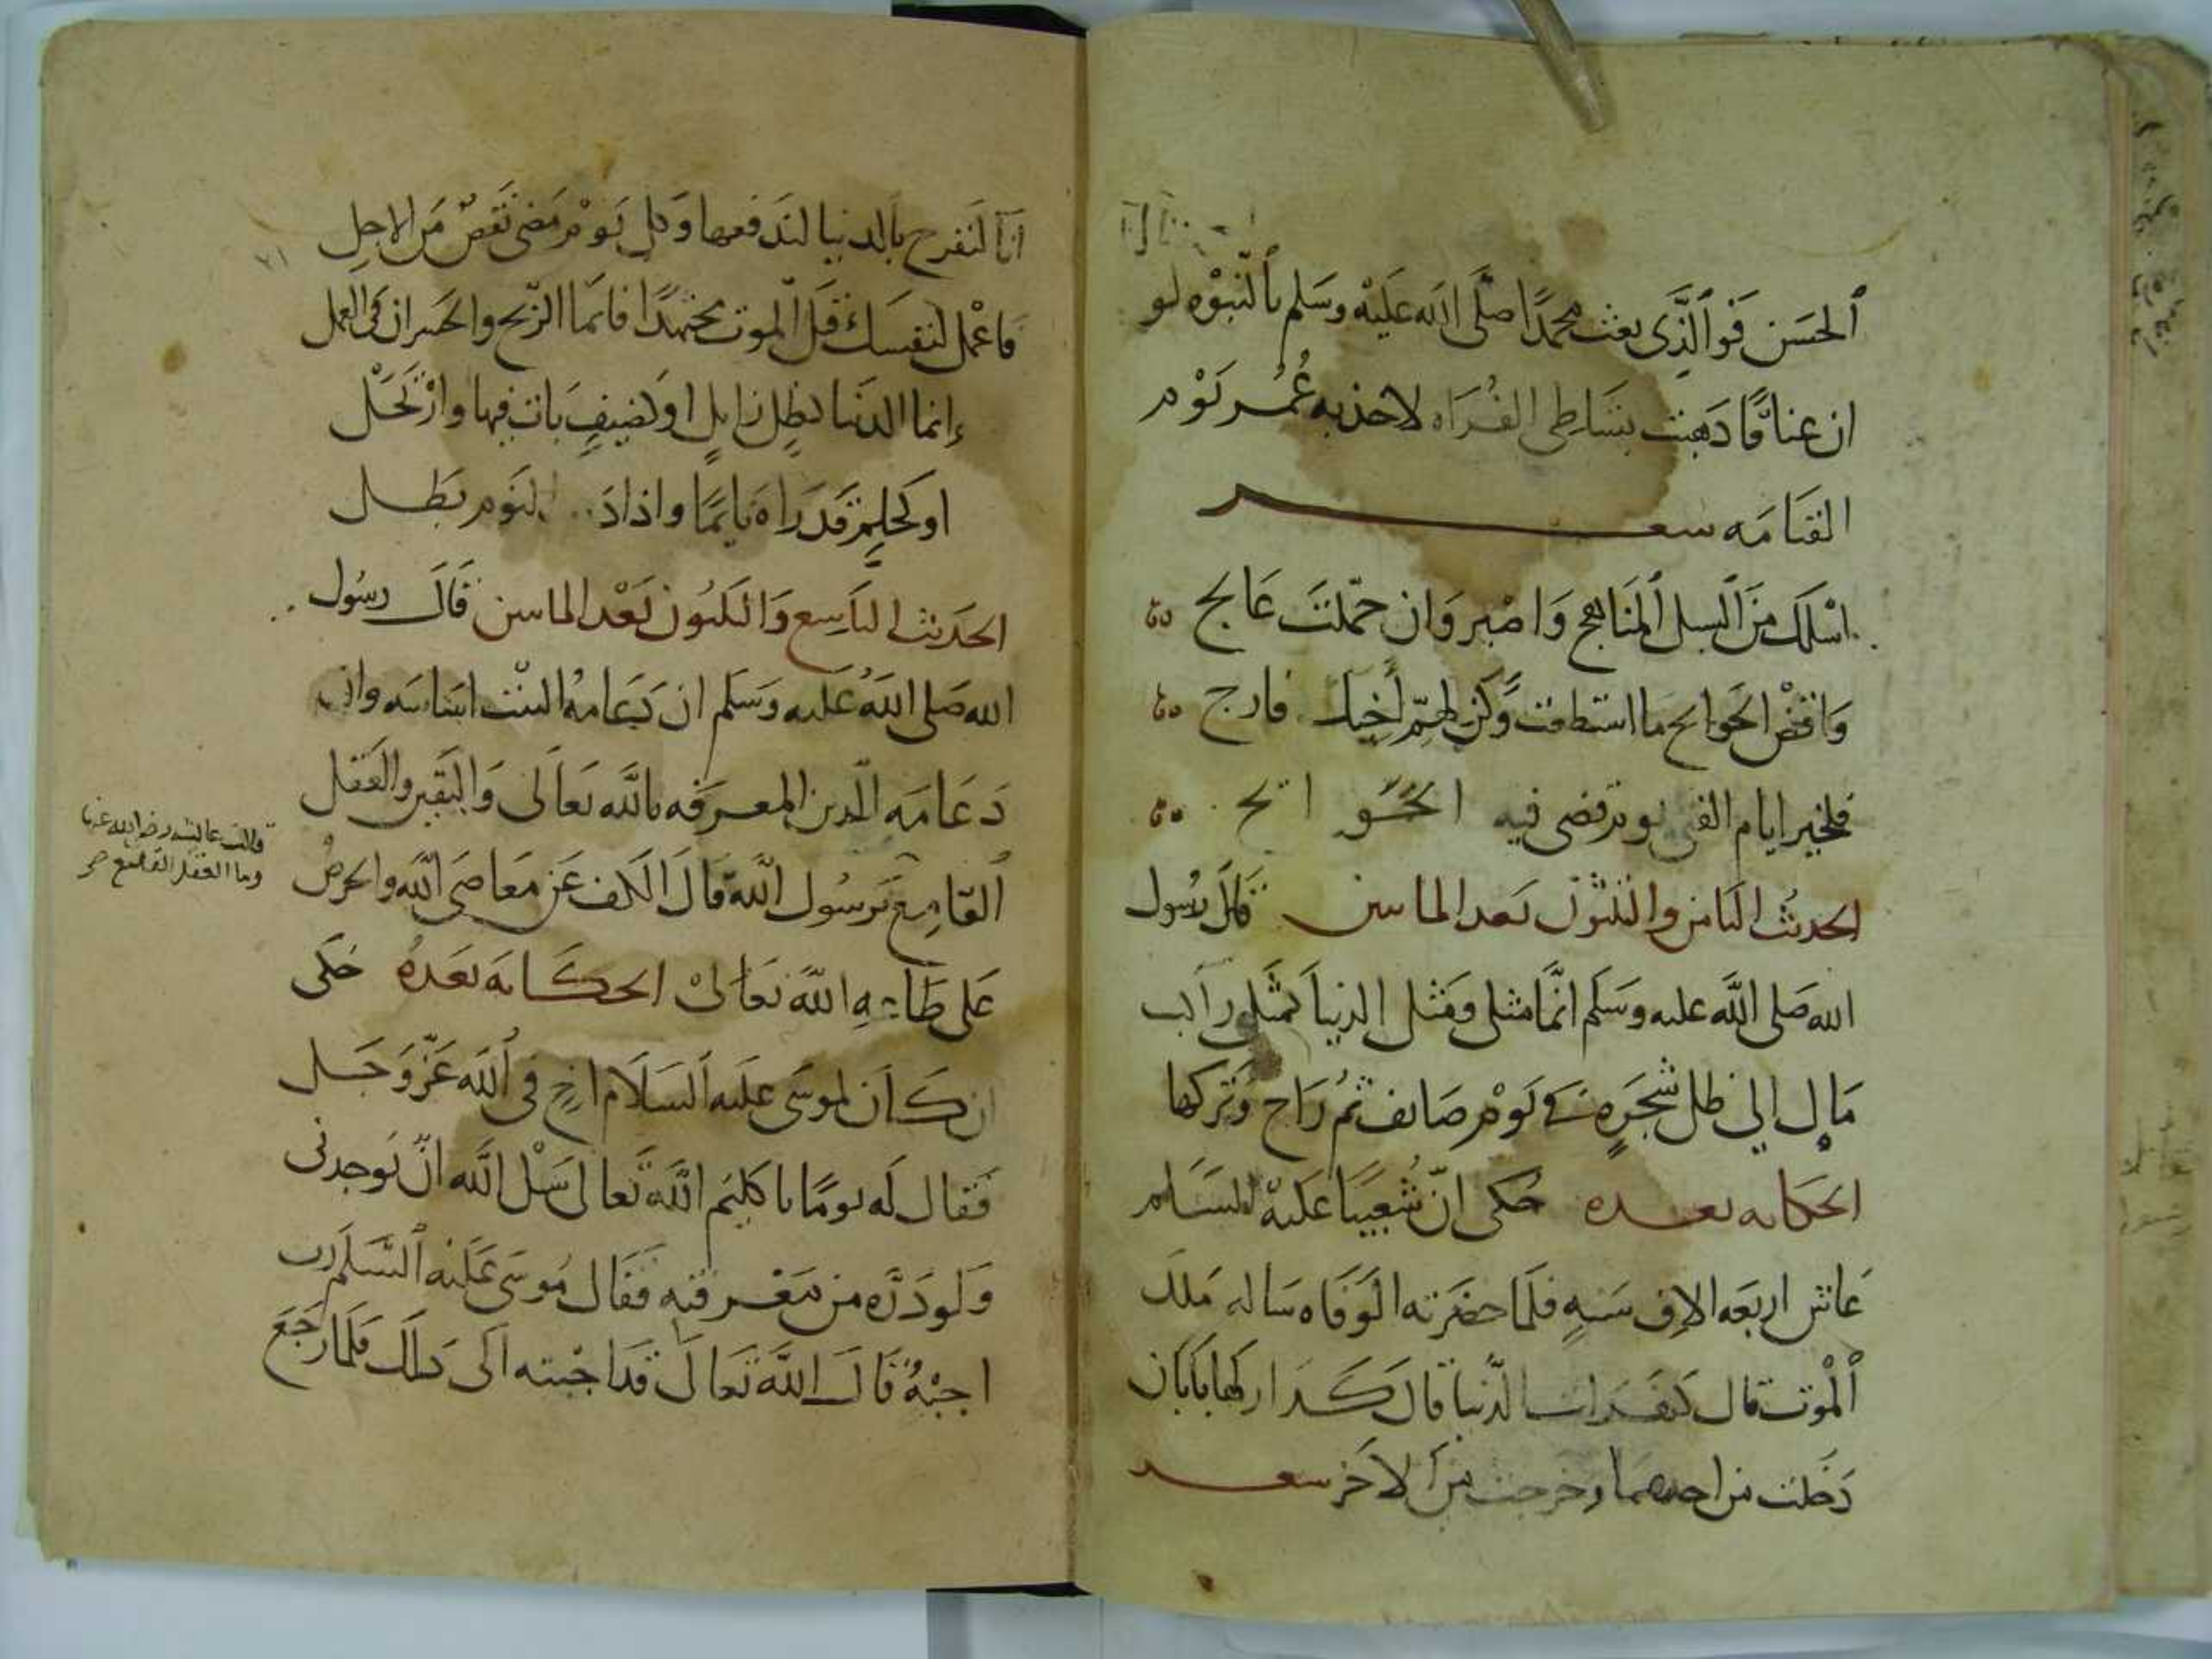 ٱلحَسَن فَوَٱلَّذِى بعث محمدًا صَلَّى ٱلله عَلَيْه وسَلم بٱلنبوْه لو
ان عناقًا ذهبَت بشَاطِى الفُرَاه لاخذ به عُمر يَوْم
القيَامَه شعر
اسْلك مِنَ ٱلسبل ٱلمَناهج وَاصْبر وَان حمّلتَ عَالج
وَاقض الحَوائج ما استطعت وَكن لِهمّ اَخيك فارج
فلخير ايام الفتى يوم قضى فيه الحَوائج
الحديث الثامن والثلثون بَعد المايتين قَال رسُول
الله صَلى الله عليه وسَلم انّما مثلى ومَثل الدنيا كمثَل راكب
مَال الي ظل شجَرةٍ في يَوْمٍ صَايف ثم رَاح وتَركها
الحكايه بعده حُكى انّ شُعيبًا عَليْه السَلم
عَاش اربعَه الاف سَنهٍ فلَما حضَرته الوَفَاه سَاله مَلك
ٱلْمَوْت قال كيفَ رايت الدّنيا قال كَدَار لها بَابَان
دَخَلت من احدهما وخرجت مِنَ الاخر شعر
انّا لنَفرح بالدنيا لندفعها وَكل يَوْم مَضى نَقصٌ مِن الاجلِ
فاعْمل لنفسك قبَل الموت مجتهدًا فانما الرّبح والخسران في العمل
إنما الدنيا كظِل زايلٍ او كضيفٍ بَات فيها وارْتحَل
او كحلمٍ قد رَاه نايمًا واذا النَوم بَطل
الحَديث التاسِع وَالثلثون بَعْد المايتين قَالَ رسُول
الله صَلى اللهُ عليه وسَلم ان دعَامهُ البيْت اسَاسه وان
دعَامَه الدين المعرفه بالله تعَالى وَاليَقين والعَقل
قالت عايشه رضى الله عنها
وما العقل القامع
ٱلقَامِع يَرسُول الله قال الكف عَن معَاصى الله والحرصُ
عَلى طَاعهِ الله تعَالىْ الحكَايه بعَدهُ حكَى
ان كَان لموسَى عليَه السَلام اخ في ٱلله عَزّ وَجَل
فَقال لَه يومًا يا كليمَ الله تَعالى سَل الله انْ يوجدنى
وَلو ذرّه من مَعْرفته فقَال مُوسَى عَليْه ٱلسّلم رب
اجبْهُ قال الله تعَالَى قد اجبْته الى ذلك فلما رَجَعَ